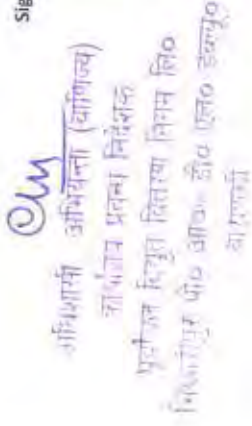 Sig
अधिशासी अभियन्ता (वाणिज्य)
कार्यालय प्रबन्ध निदेशक
पूर्वांचल विद्युत वितरण निगम लि०
भिखारीपुर पो० आ०- डी० एल० डब्ल्यू०
वाराणसी